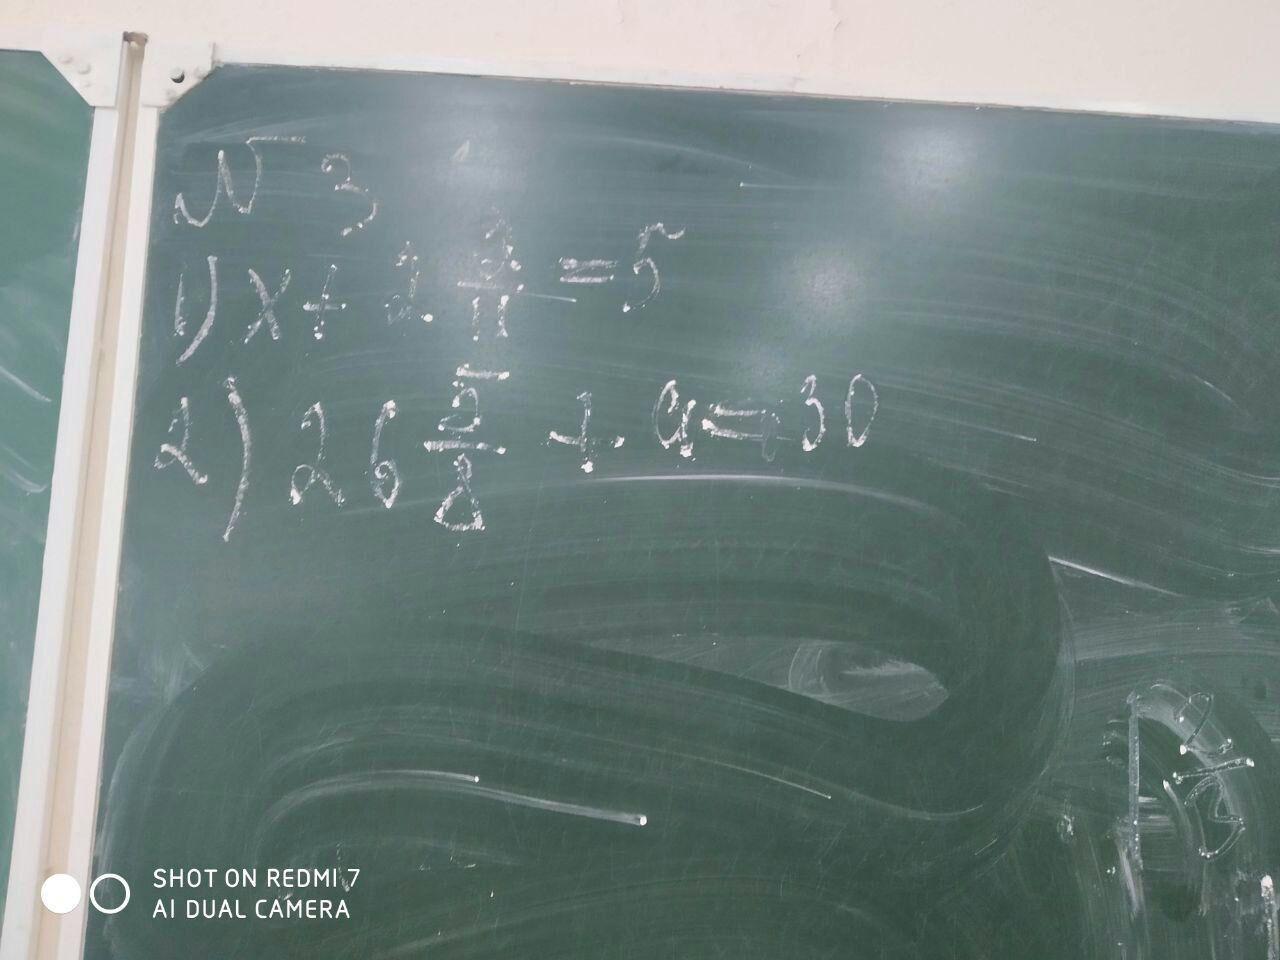 № 3
1) x + 2 2/11 = 5
2) 26 5/8 + a = 30
SHOT ON REDMI 7
AI DUAL CAMERA